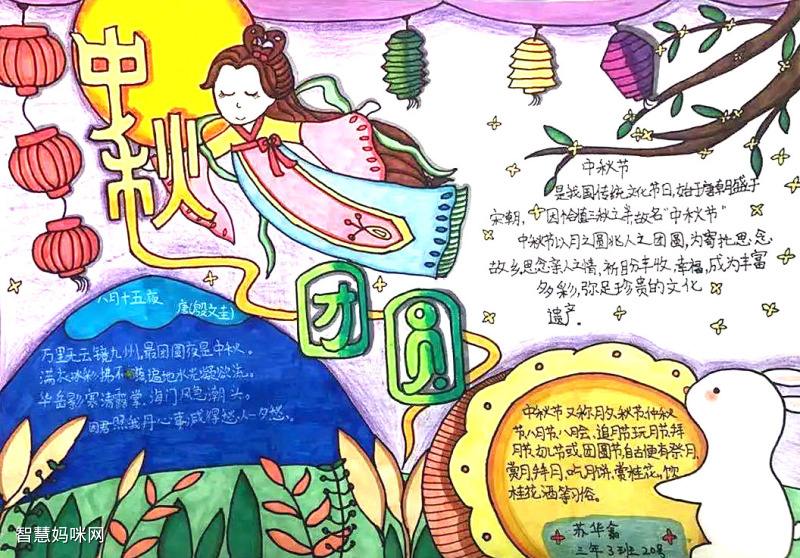 中秋
团圆
中秋节
是我国传统文化节日,始于唐朝盛于
宋朝,因恰值三秋之半故名"中秋节"
中秋节以月之圆兆人之团圆,为寄托思念
故乡思念亲人之情,祈盼丰收,幸福,成为丰富
多彩,弥足珍贵的文化
遗产。
八月十五夜
唐(殷文圭)
万里无云镜九州,最团圆夜是中秋。
满衣冰彩拂不落,遍地水光凝欲流。
华岳影寒清露掌,海门风急潮头。
因君照我丹心事,减得愁人一夕愁。
中秋节又称月夕,秋节,仲秋
节,八月节,八月会,追月节,玩月节,拜
月节,女儿节或团圆节,自古便有祭月,
赏月,拜月,吃月饼,赏桂花,饮
桂花酒等习俗。
苏华
三年3班20号
智慧妈咪网